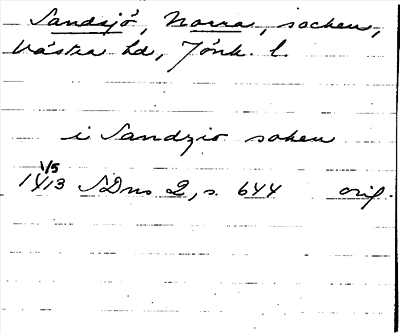 Sandsjö, Norra, socken,
Västra hd, Jönk. l.
i Sandzio soken
1/5
1413 SDns 2, s. 644 orig.